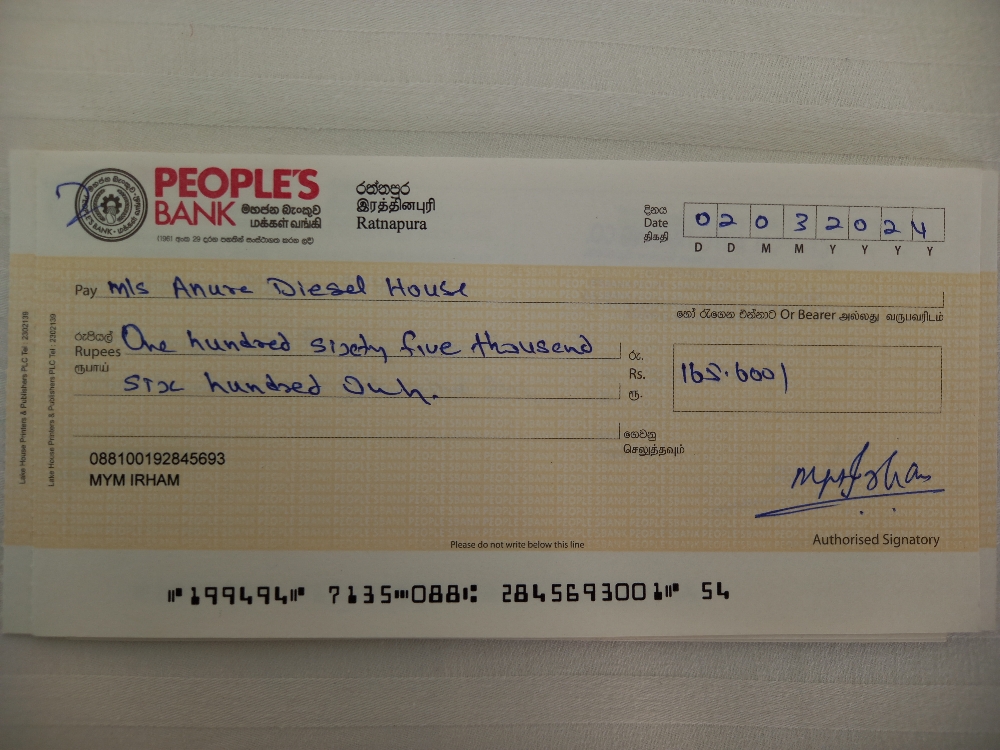 PEOPLE'S
BANK මහජන බැංකුව
மக்கள் வங்கி
(1961 අංක 29 දරන පනතින් සංස්ථාගත කරන ලදි)
රත්නපුර
இரத்தினபுரி
Ratnapura
දිනය
Date 0 2 0 3 2 0 2 4
திகதி D D M M Y Y Y Y
Pay M/s Anura Diesel House
හෝ රැගෙන එන්නාට Or Bearer அல்லது வருபவரிடம்
රුපියල්
Rupees One hundred sixty five thousand
ரூபாய் six hundred Only.
රු.
Rs. 165.600/
ரூ.
ගෙවනු
செலுத்தவும்
088100192845693
MYM IRHAM
Authorised Signatory
Please do not write below this line
199494 7135 088 284569300 1 54
Lake House Printers & Publishers PLC Tel : 2302139
Lake House Printers & Publishers PLC Tel : 2302139